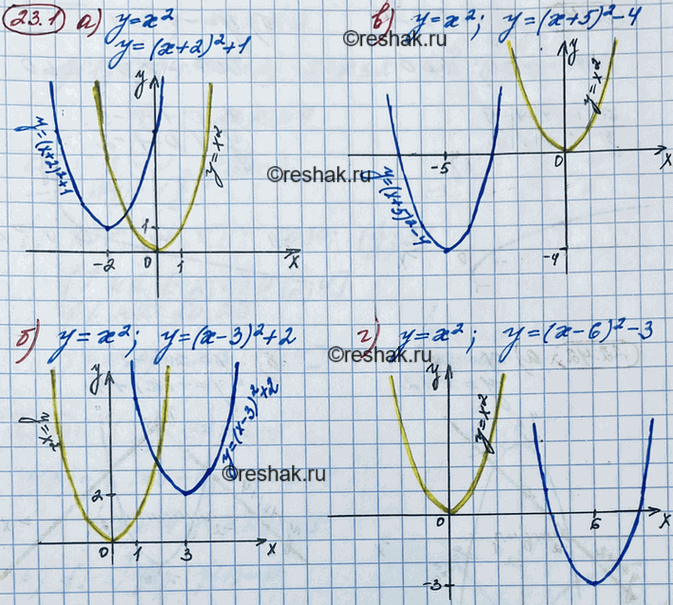 23.1 а) y=x²
y=(x+2)²+1
y
y=(x+2)²+1
y=x²
1
-2 0 1 x
в) y=x²; y=(x+5)²-4
©reshak.ru
y
y=x²
-5 0 x
y=(x+5)²-4
-4
©reshak.ru
б) y=x²; y=(x-3)²+2
y
y=x²
y=(x-3)²+2
2
0 1 3 x
г) y=x²; y=(x-6)²-3
©reshak.ru
y
y=x²
0 6 x
-3
©reshak.ru